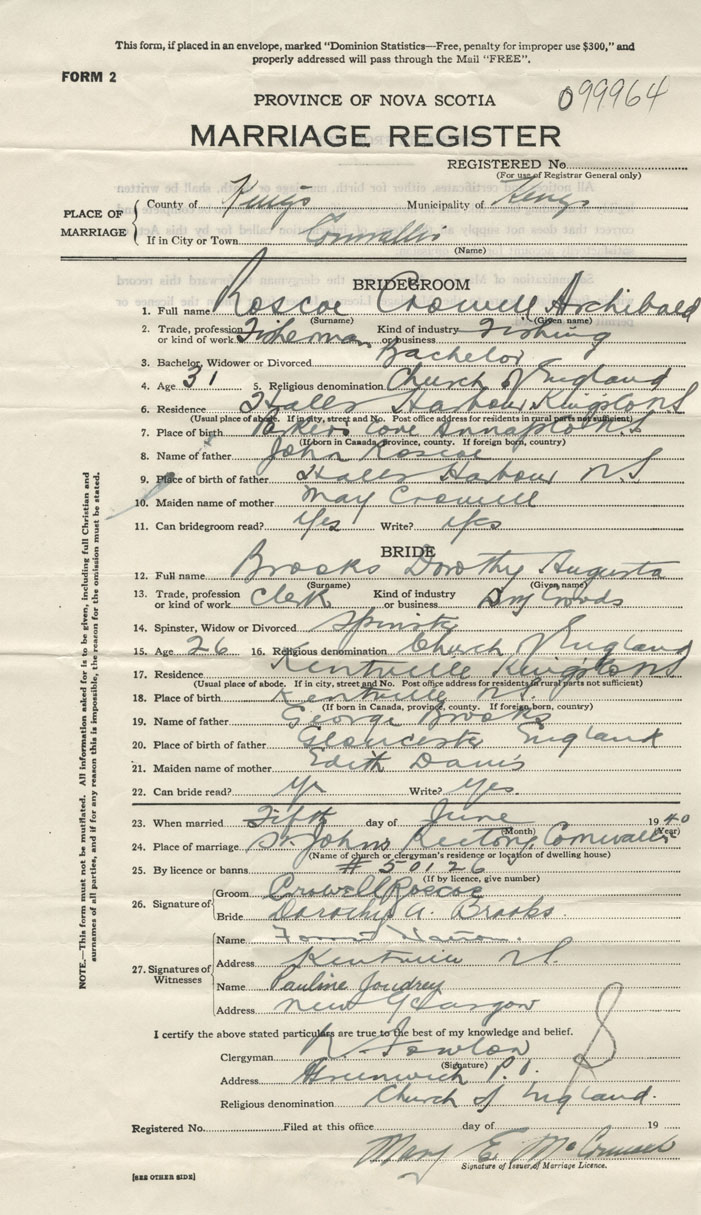 This form, if placed in an envelope, marked "Dominion Statistics—Free, penalty for improper use $300," and
properly addressed will pass through the Mail "FREE".
FORM 2
099964
PROVINCE OF NOVA SCOTIA
MARRIAGE REGISTER
REGISTERED No.
(For use of Registrar General only)
PLACE OF MARRIAGE
County of Kings Municipality of Kings
If in City or Town Cornwallis
(Name)
BRIDEGROOM
1. Full name Roscoe Crowell Archibald
(Surname) (Given name)
2. Trade, profession or kind of work Fisherman Kind of industry or business Fishing
3. Bachelor, Widower or Divorced Bachelor
4. Age 31 5. Religious denomination Church of England
6. Residence Halls Harbour Kings Co N.S
(Usual place of abode. If in city, street and No. Post office address for residents in rural parts not sufficient)
7. Place of birth Parkers Cove Annapolis N.S
(If born in Canada, province, county. If foreign born, country)
8. Name of father John Roscoe
9. Place of birth of father Halls Harbour N.S
10. Maiden name of mother May Crowell
11. Can bridegroom read? Yes Write? Yes
BRIDE
12. Full name Brooks Dorothy Augusta
(Surname) (Given name)
13. Trade, profession or kind of work Clerk Kind of industry or business Dry Goods
14. Spinster, Widow or Divorced Spinster
15. Age 26 16. Religious denomination Church of England
17. Residence Kentville Kings Co N.S
(Usual place of abode. If in city, street and No. Post office address for residents in rural parts not sufficient)
18. Place of birth Kentville N.S.
(If born in Canada, province, county. If foreign born, country)
19. Name of father George Brooks
20. Place of birth of father Gloucester England
21. Maiden name of mother Edith Davis
22. Can bride read? Yes Write? Yes.
23. When married Fifth day of June 1940
(Month) (Year)
24. Place of marriage St. Johns Rectory Cornwallis
(Name of church or clergyman's residence or location of dwelling house)
25. By licence or banns # 50126
(If by licence, give number)
26. Signature of
Groom Crowell Roscoe
Bride Dorothy A. Brooks.
27. Signatures of Witnesses
Name
Address Kentville N.S.
Name Pauline Joudrey
Address New Glasgow
I certify the above stated particulars are true to the best of my knowledge and belief.
Clergyman
(Signature)
Address Greenwich P.O.
Religious denomination Church of England.
Registered No. Filed at this office day of 19
Mary E.
Signature of Issuer of Marriage Licence.
[SEE OTHER SIDE]
NOTE.—This form must not be mutilated. All information asked for is to be given, including full Christian and
surnames of all parties, and if for any reason this is impossible, the reason for the omission must be stated.